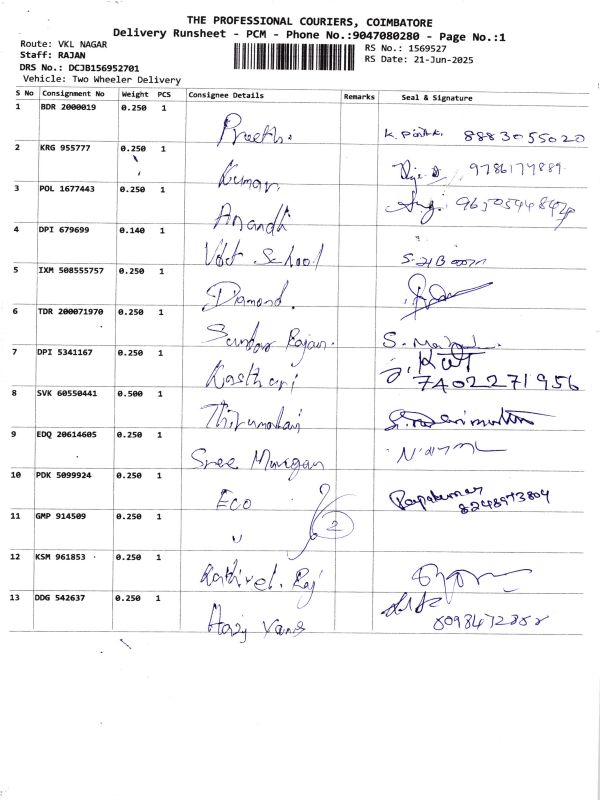 THE PROFESSIONAL COURIERS, COIMBATORE
Delivery Runsheet - PCM - Phone No.:9047080280 - Page No.:1
Route: VKL NAGAR
RS No.: 1569527
Staff: RAJAN
RS Date: 21-Jun-2025
DRS No.: DCJB156952701
Vehicle: Two Wheeler Delivery
S No Consignment No Weight PCS Consignee Details Remarks Seal & Signature
1 BDR 2000019 0.250 1
Preeth. 8883055020
2 KRG 955777 0.250 1
Kuman
3 POL 1677443 0.250 1
Anandh
4 DPI 679699 0.140 1
School
5 IXM 508555757 0.250 1
Diamond.
6 TDR 200071970 0.250 1
Sundar Rajan. S.
7 DPI 5341167 0.250 1
Kasthuri 7402271956
8 SVK 60550441 0.500 1
9 EDQ 20614605 0.250 1
Sree Murugan
10 PDK 5099924 0.250 1
Eco 8248973804
11 GMP 914509 0.250 1
" 2
12 KSM 961853 0.250 1
Kathirvel. Raj
13 DDG 542637 0.250 1